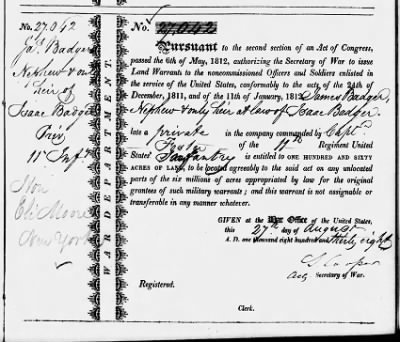 No. 27.042
Jas. Badger
Nephew & only
heir of
Isaac Badger
Priv
11 Inf.
Hon
Eli Moore
New York
WAR DEPARTMENT.
No. 27.042
Pursuant to the second section of an Act of Congress,
passed the 6th of May, 1812, authorizing the Secretary of War to issue
Land Warrants to the noncommissioned Officers and Soldiers enlisted in
the service of the United States, conformably to the acts of the 24th of
December, 1811, and of the 11th January, 1812, James Badger,
Nephew & only heir at law of Isaac Badger
late a private in the company commanded by Capt.
of the 11th Regiment United
States' Infantry is entitled to ONE HUNDRED AND SIXTY
ACRES OF LAND, to be located agreeably to the said act on any unlocated
parts of the six millions of acres appropriated by law for the original
grantees of such military warrants; and this warrant is not assignable or
transferable in any manner whatever.
GIVEN at the War Office of the United States,
this 27th day of August
A. D. one thousand eight hundred and thirty eight
S. Cooper
Actg Secretary of War.
Registered.
Clerk.